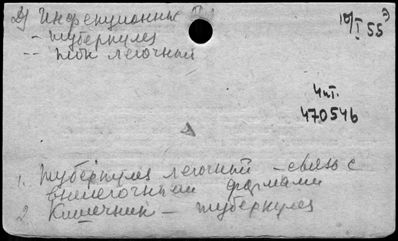 2) Инфекционные
19/I 55 э
- туберкулез
-- ток легочный
4 шт.
470546
1. Туберкулез легочный - связь с
внелегочными формами
2. Кишечник - туберкулез